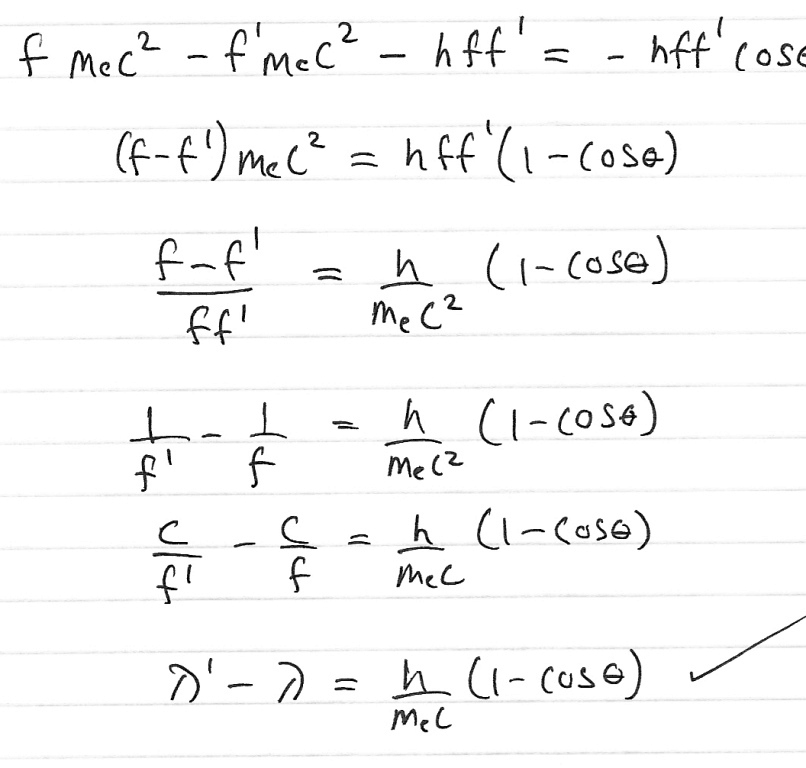 f mₑc² - f'mₑc² - hff' = - hff' cosθ
(f-f')mₑc² = hff'(1-cosθ)
f-f' / ff' = h / mₑc² (1-cosθ)
1/f' - 1/f = h / mₑc² (1-cosθ)
c/f' - c/f = h / mₑc (1-cosθ)
λ' - λ = h / mₑc (1-cosθ) ✓